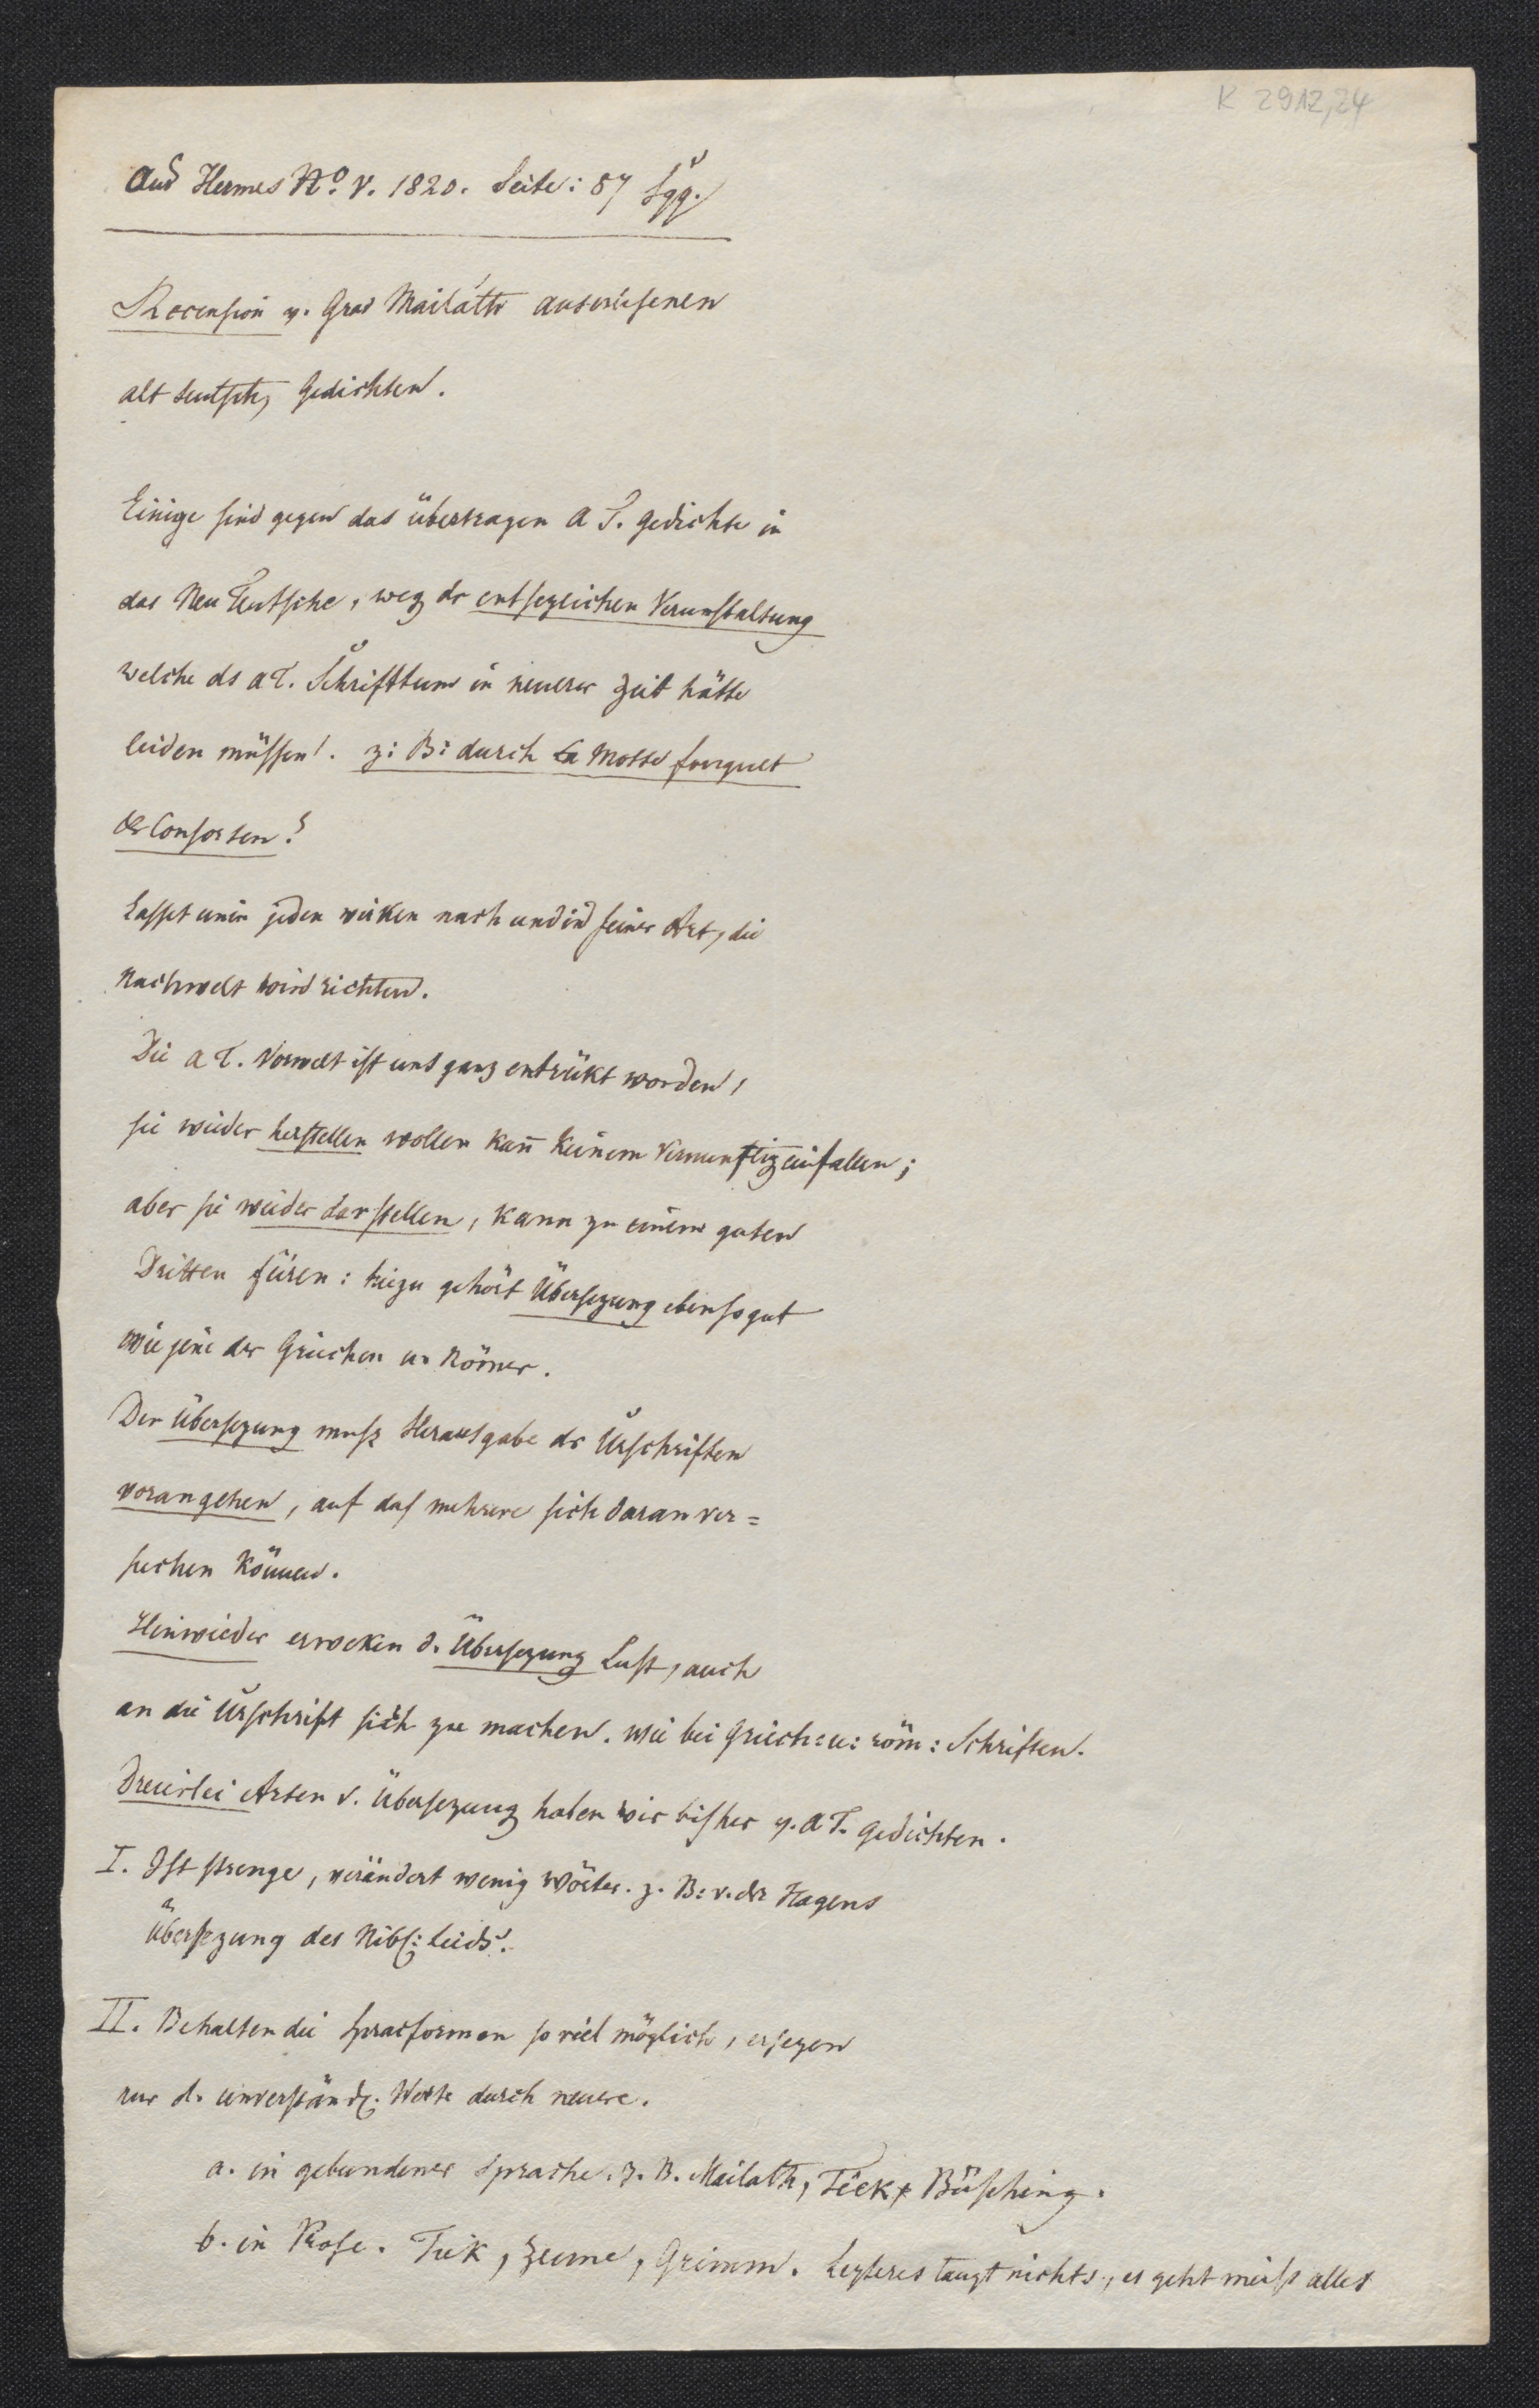 K 2912,24
Aus Hermes No. V. 1820. Seite: 87 sqq.
Recension v. Graf Mailáth auserlesenen
alt teutsch, Gedichten.
Einige sind gegen das übertragen a T. Gedichte in
das Neu Teutsche, weg dr entsezlichen Verunstaltung
welche ds a T. Schrifttum in neuerer Zeit hätte
leiden müssen!. z: B: durch La Motte fouquet
& Consorten?
Lasset jeden wirken nach und in seiner Art, die
Nachwelt wird richten.
Die a T. Vorwelt ist uns ganz entrükt worden,
sie wieder herstellen wollen kañ keinem Vernünftig einfallen;
aber sie wieder darstellen, kann zu einem guten
Dritten füren: hiezu gehört Übersezung ebensogut
wie jene der Griechen u. Römer.
Der Übersezung muß Herausgabe dr Urschriften
vorangehen, auf daß mehrere sich daran ver=
suchen können.
Hinwieder erweken d. Übersezung Lust, auch
an die Urschrift sich zu machen. wie bei Griech: u: röm: Schriften.
Dreierlei Arten v. Übersezung haben wir bisher v. a T. Gedichten.
I. Ist strenge, verändert wenig Wörter. z. B: v. dr Hagens
Übersezung des Nibl: Lieds.
II. Behalten die Spracformen so viel möglich, ersezen
nur d. unverständl. Worte durch neuere.
a. in gebundener Sprache. z. B. Mailath, Tieck, Büsching.
b. in Prosa. Tiek, Zeune, Grimm. Lezteres taugt nichts, es geht meist alles